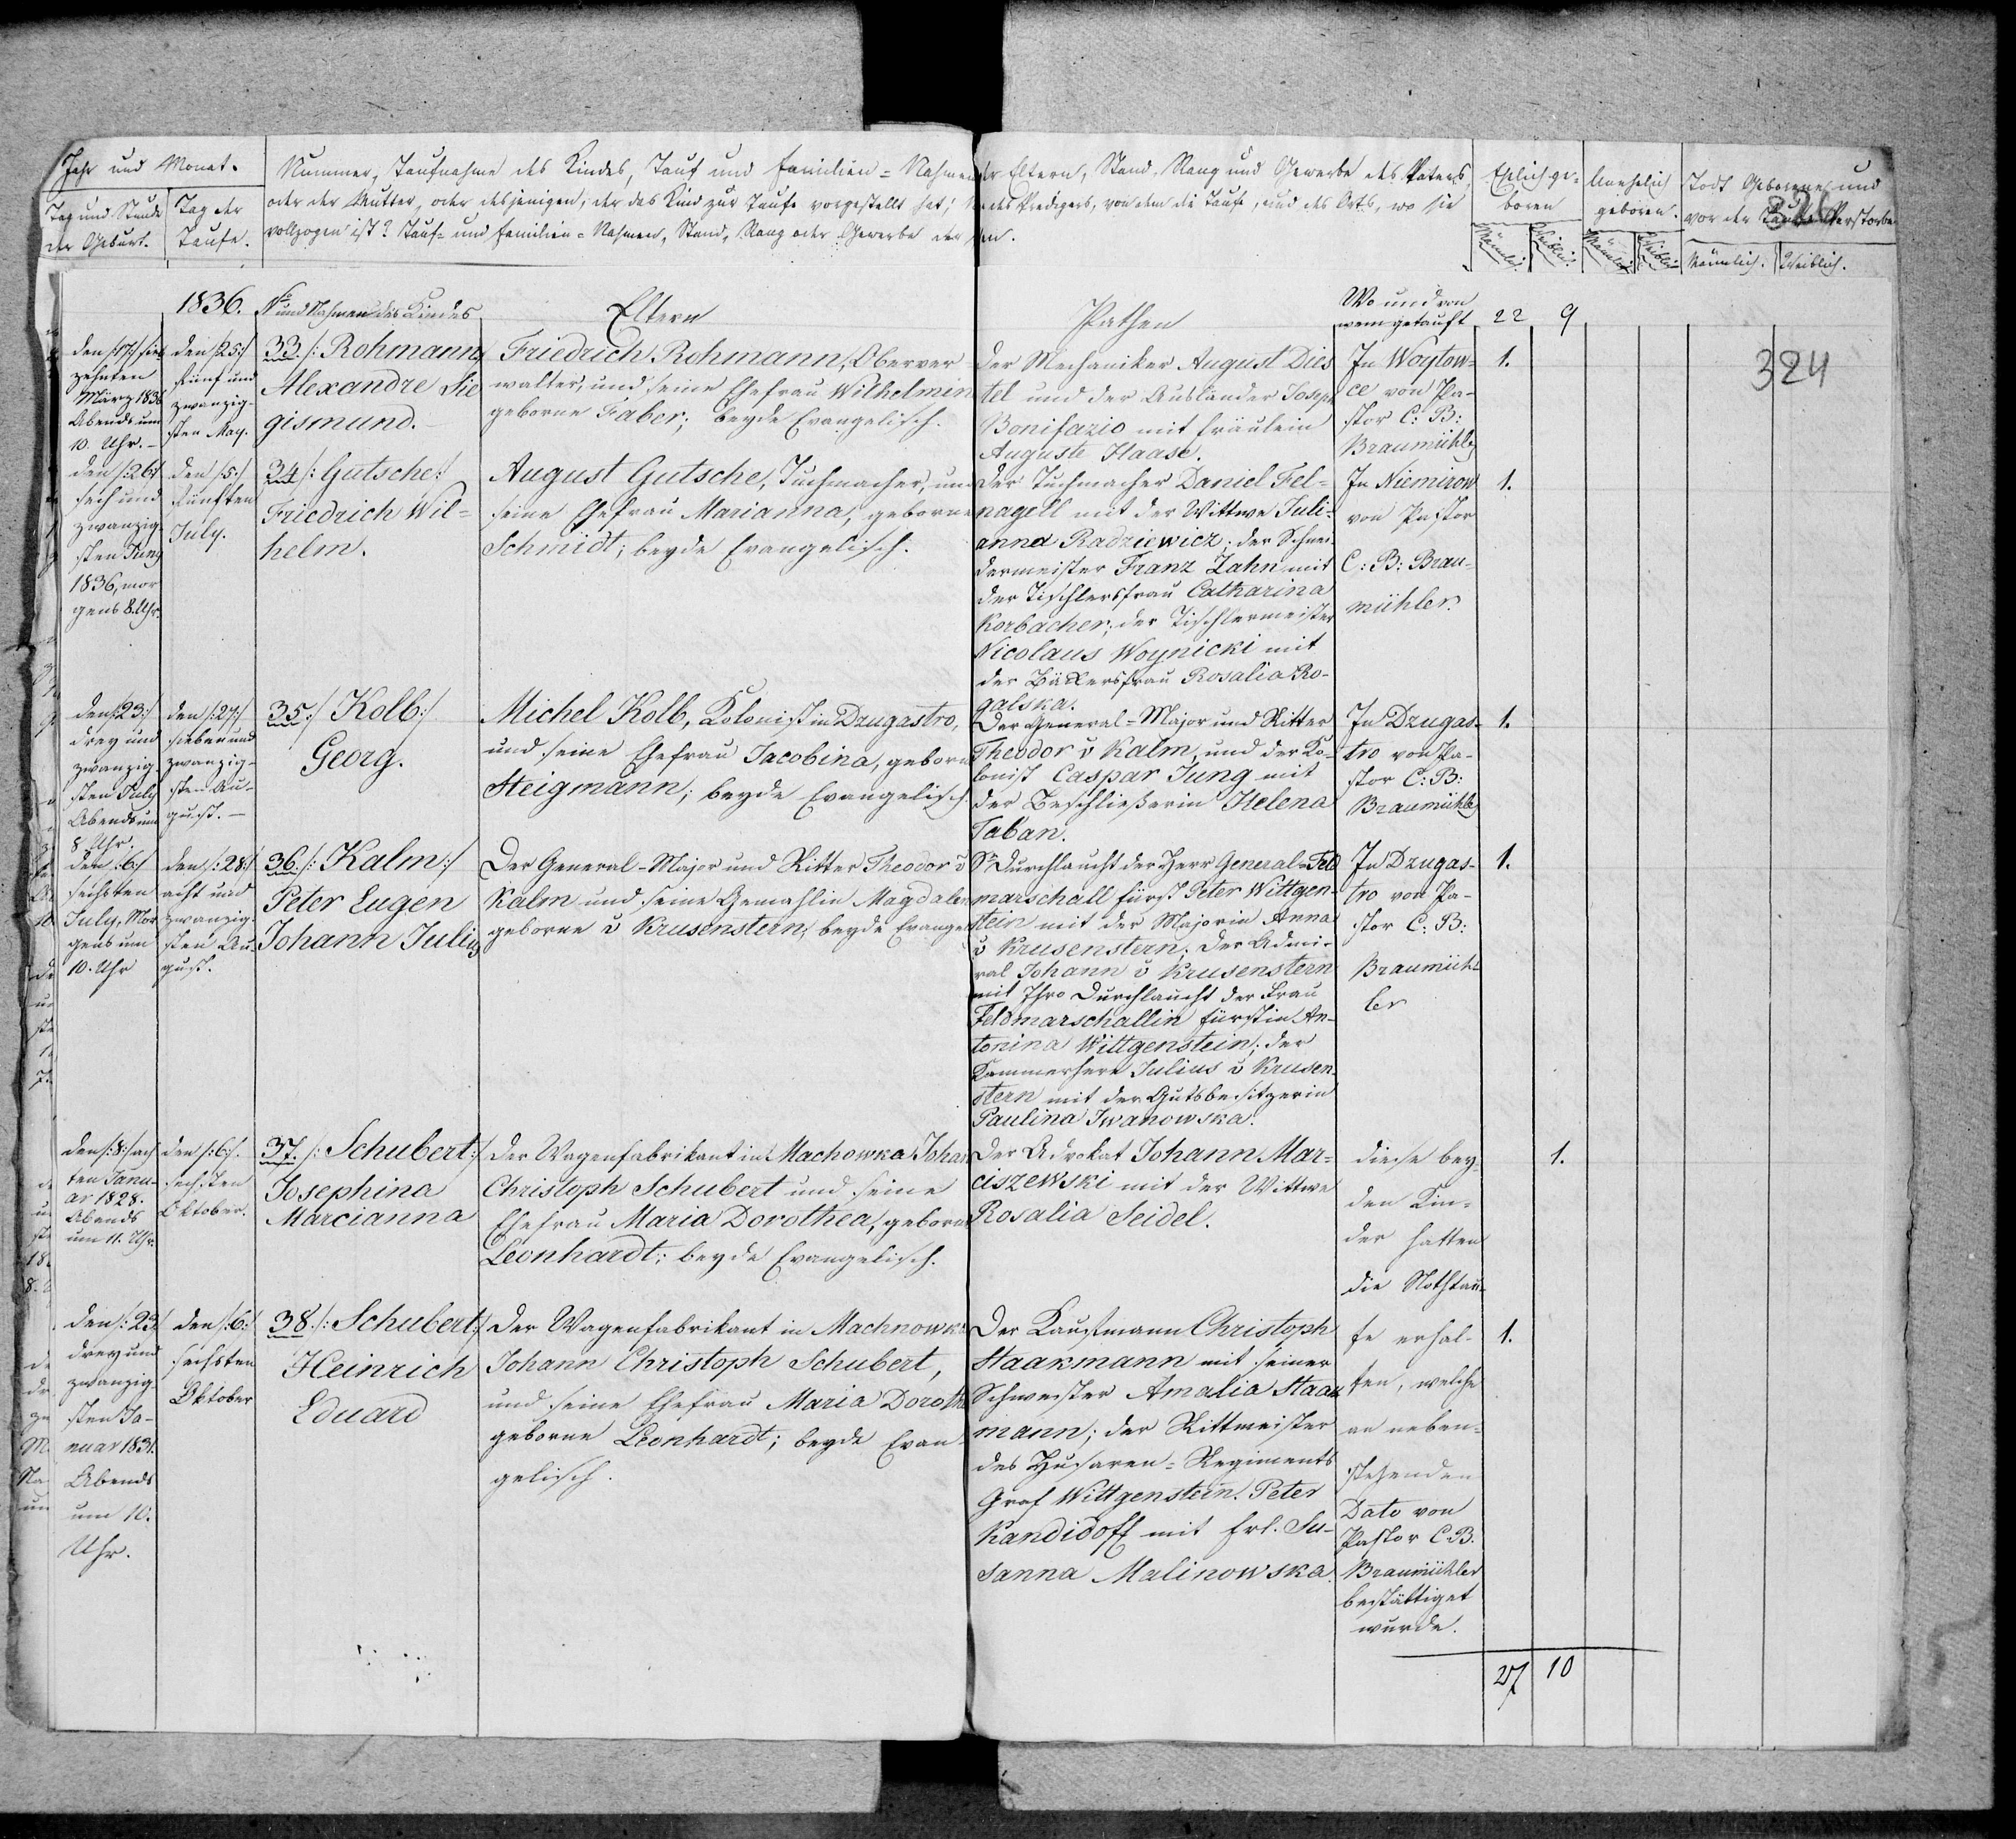 Jahr und Monat.
Tag und Stunde der Geburt.
Tag der Taufe.
Nummer, Taufnahme des Kindes, Tauf und Familien-Nahmen der Eltern, Stand, Rang und Gewerbe des Vaters,
oder der Mutter, oder desjenigen, der das Kind zur Taufe vorgestellt hat; des Predigers, von dem die Taufe, und des Orts, wo sie
vollzogen ist? Tauf- und Familien-Nahmen, Stand, Rang oder Gewerbe der
Ehlich ge-
boren
Männlich.
Weiblich.
Unehelich
geboren.
Männlich
Weiblich
Todt Geborene und
vor der Taufe Verstorbe
Männlich.
Weiblich.
326
324
1836.
No und Nahmen des Kindes
Eltern
Pathen
Wo und von
wem getauft
22
9
den /:17:/ sieb
zehnten
März 1836
Abends um
10. Uhr.
den /:25:/
fünf und
zwanzig-
sten May.
33. /: Rohmann
Alexandre Sie
gismund.
Friedrich Rohmann, Oberver
walter, und seine Ehefrau Wilhelmin
geborne Faber; beyde Evangelisch.
Der Mechaniker August Dies
tel und der Ausländer Joseph
Bonifazio mit Fräulein
Auguste Haase.
In Woytow-
ce von Pa-
stor C: B:
Braumühler
1.
den /:26:/
sech und
zwanzig-
sten Juny
1836, mor
gens 8. Uhr.
den /:5:/
Fünften
July.
34 /: Gutsche:/
Friedrich Wil-
helm.
August Gutsche, Tuchmacher, und
seine Ehefrau Marianna, geborne
Schmidt; beyde Evangelisch.
Der Tuchmacher Daniel Fel-
nagell mit der Wittwe Juli-
anna Radziewicz; der Schnei-
dermeister Franz Zahn mit
der Tischlersfrau Catharina
Korbacher; der Tischlermeister
Nicolaus Woynicki mit
der Bäkersfrau Rosalia Ro-
galska.
In Niemirow
von Pastor
C: B: Brau-
mühler.
1.
den /:23:/
drey und
zwanzig-
sten July
Abends um
8 Uhr.
den /:27:/
sieben und
zwanzig-
sten Au-
gust.
35 :/ Kolb:/
Georg.
Michel Kolb, Kolonist in Dzugastro,
und seine Ehefrau Jacobina, geborn
Steigmann; beyde Evangelisch.
Der General-Major und Ritter
Theodor v Kalm, und der Ko-
lonist Caspar Jung mit
der Beschließerin Helena
Taban.
In Dzugas-
tro von Pa-
stor C: B:
Braumühler
1.
den /:6:/
sechsten
July, Mor
gens um
10. Uhr
den /:28:/
acht und
zwanzig-
sten Au-
gust.
36. /: Kalm :/
Peter Eugen
Johann Julius
Der General-Major und Ritter Theodor v
Kalm und seine Gemahlin Magdalen
geborne v Krusenstern; beyde Evange
Sr Durchlaucht der Herr General-Feld
marschall Fürst Peter Wittgen-
stein mit der Majorin Anna
v Krusenstern; der Admi-
ral Johann v Krusenstern
mit Ihro Durchlaucht der Frau
Feldmarschallin Fürstin An-
tonina Wittgenstein; der
Kammerherr Julius v Krusen-
stern mit der Gutsbesitzerin
Paulina Iwanowska.
In Dzugas-
tro von Pa-
stor C: B:
Braumüh-
ler
1.
den /:8:/ ach
ten Janu-
ar 1828.
Abends
um 11. Uhr.
den /:6:/
sechsten
Oktober.
37. /: Schubert:/
Josephina
Marcianna
Der Wagenfabrikant in Machowka Johan
Christoph Schubert und seine
Ehefrau Maria Dorothea, geborne
Leonhardt; beyde Evangelisch.
Der Advokat Johann Mar-
ciszewski mit der Wittwe
Rosalia Seidel.
diese bey-
den Kin-
der hatten
die Nothtau-
1.
den /:23:
drey und
zwanzig-
sten Ja-
nuar 1831.
Abends
um 10.
Uhr.
den /:6:/
sechsten
Oktober
38. /: Schubert:/
Heinrich
Eduard
Der Wagenfabrikant in Machnowka
Johann Christoph Schubert,
und seine Ehefrau Maria Doroth
geborne Leonhardt; beyde Evan-
gelisch.
Der Kaufmann Christoph
Staakmann mit seiner
Schwester Amalia Staak
mann; der Rittmeister
des Husaren-Regiments
Graf Wittgenstein. Peter
Kandidoff mit Frl. Su-
sanna Malinowska.
fe erhal-
ten, welche
an neben-
stehenden
Dato von
Pastor C.B.
Braumühler
bestättiget
wurde.
1.
27
10